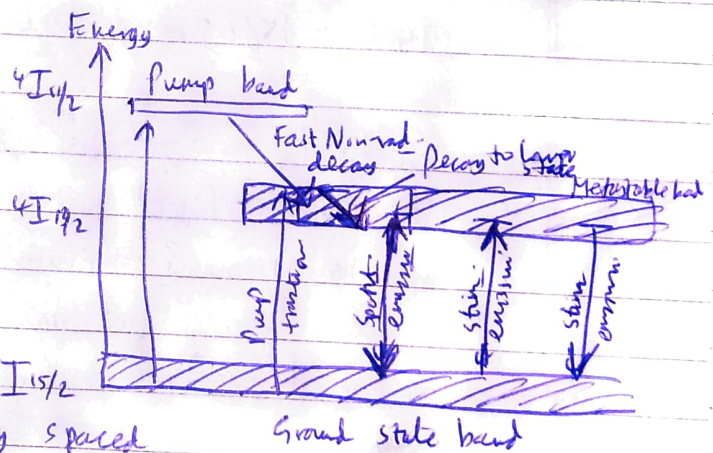 Energy
4I11/2
Pump band
Fast Non-rad.
decay
Decay to lower
state
Metastable band
4I13/2
Pump
Spont.
emission
Stim.
emission
Stim
emission
I15/2
spaced
Ground state band